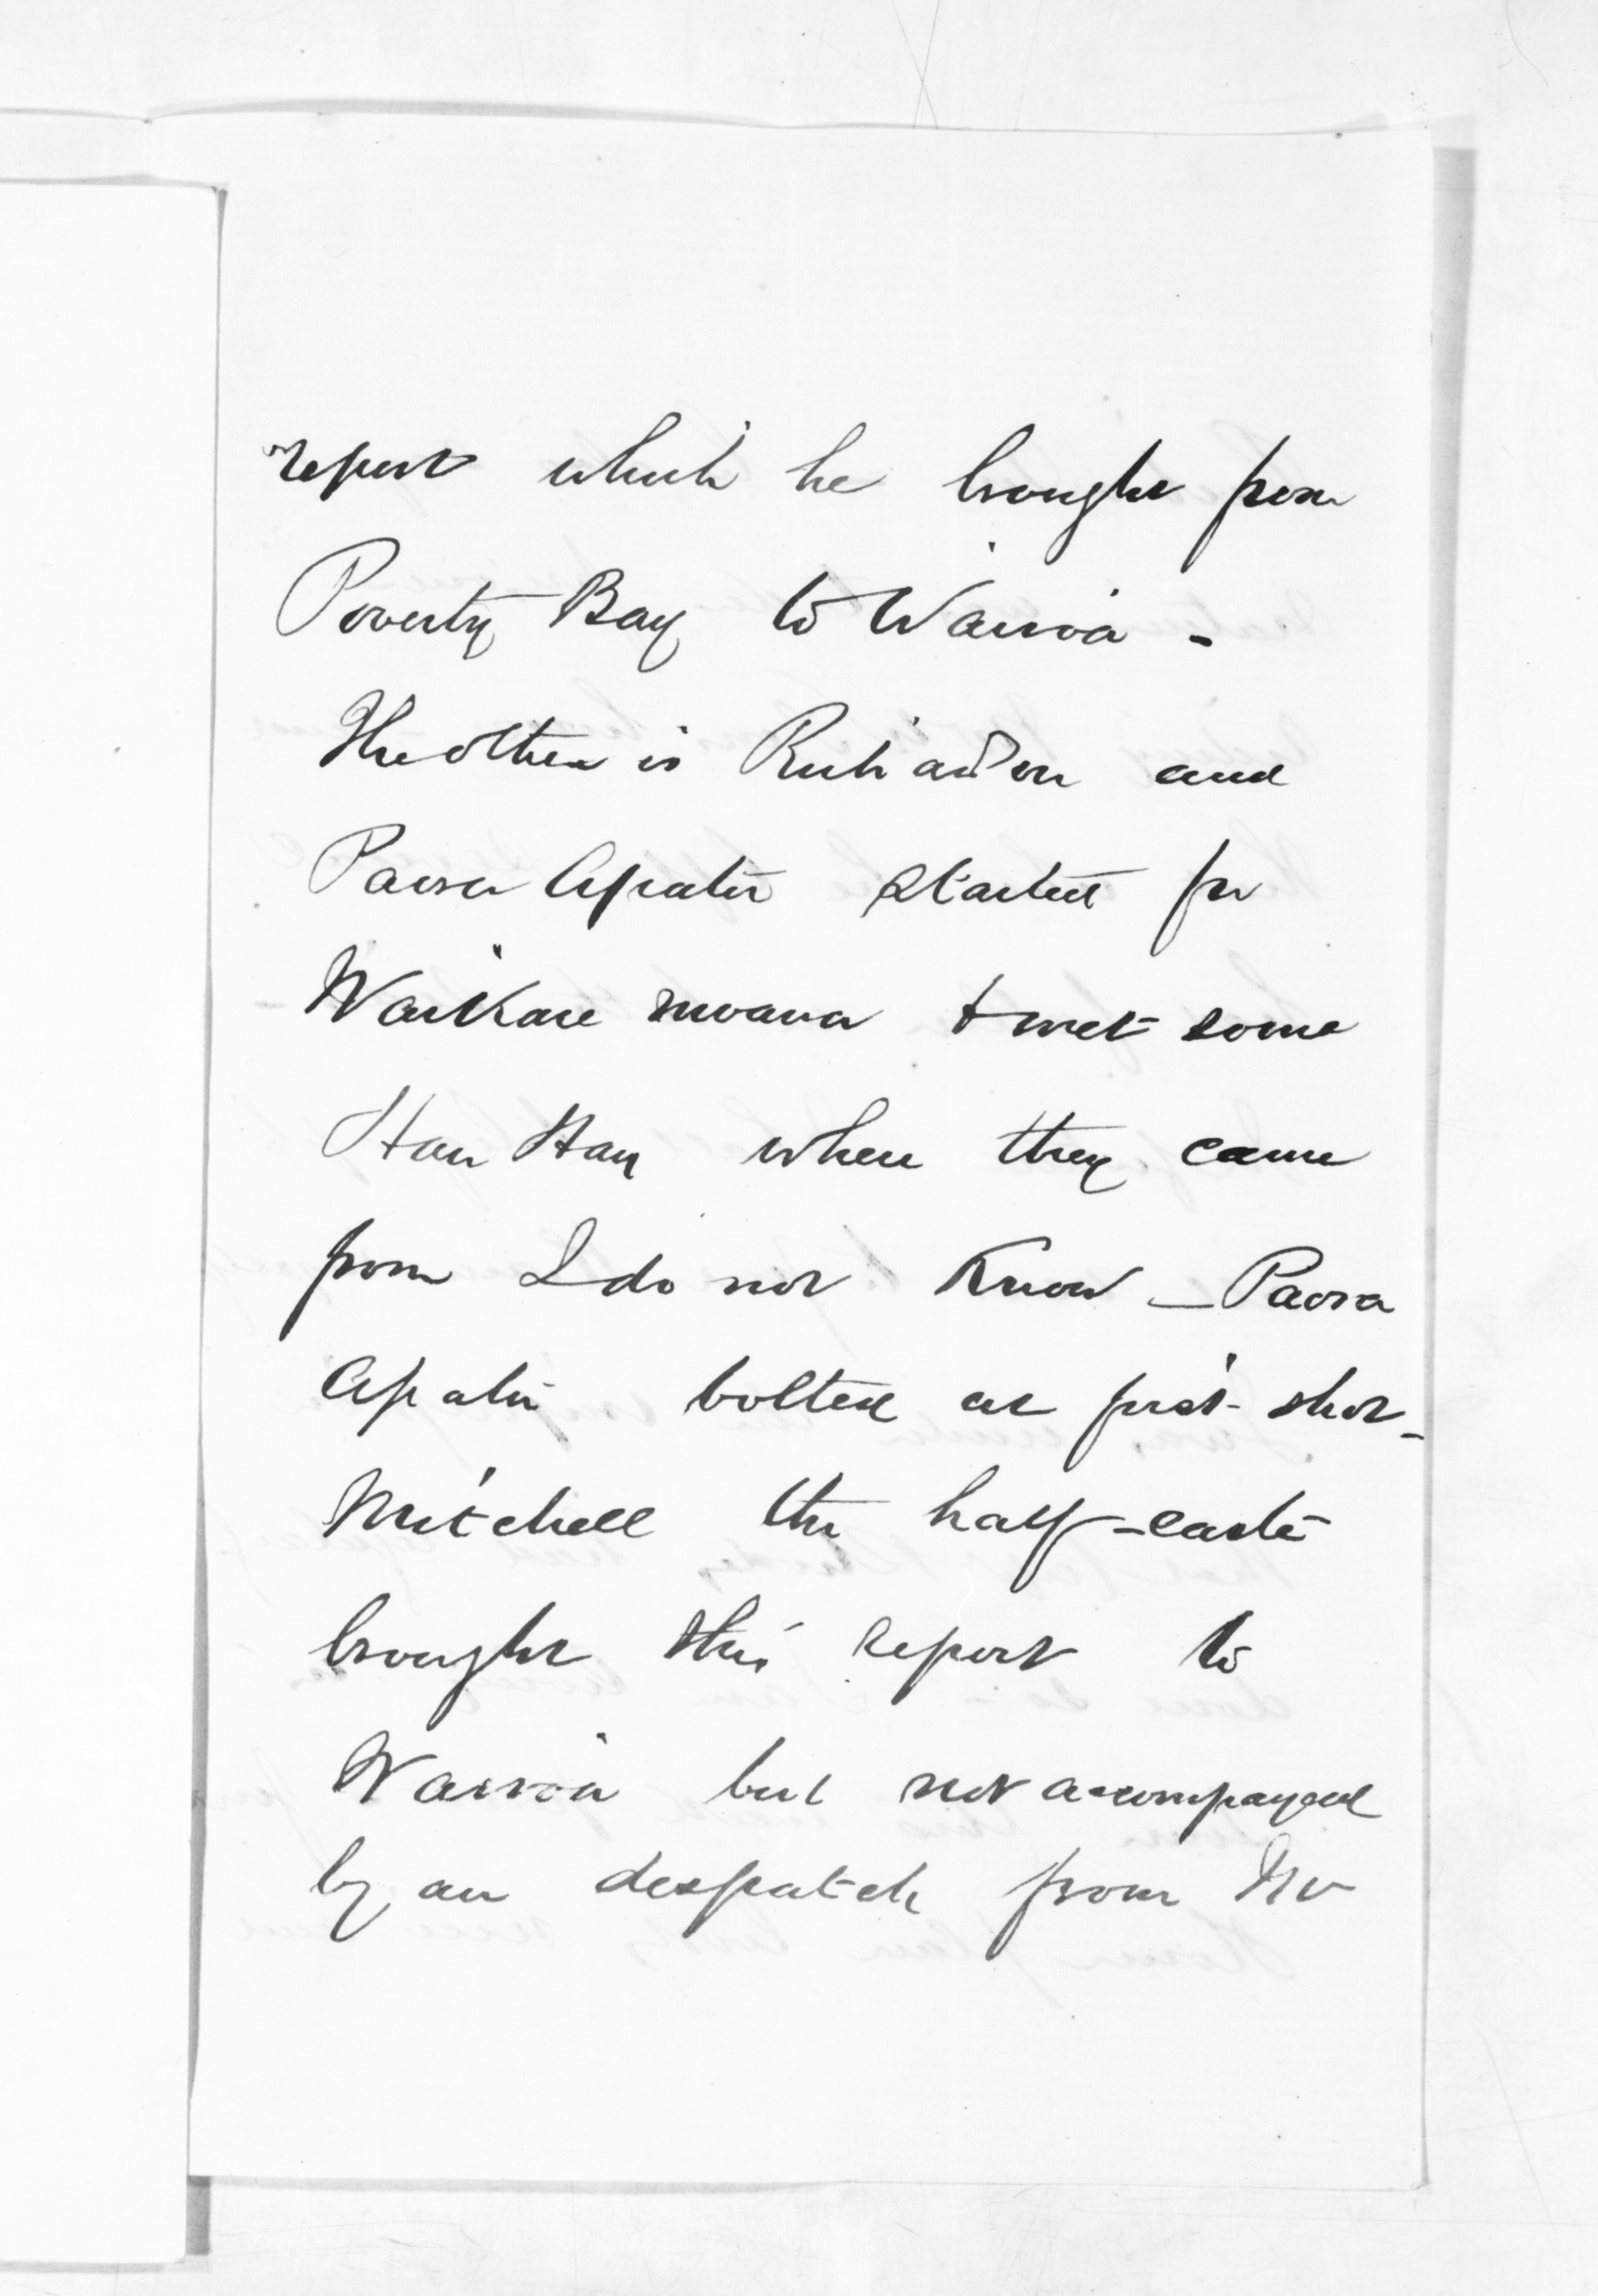 report which he brought from
Poverty Bay to Wairoa -
The other is Richardson and
Paora Apatu started for
Waikare moana & met some
Hau Hau where they came
from I do not know _ Paora
Apatu bolted at first shot _
Mitchell the half-caste
brought this report to
Wairoa but not accompanyed
by an despatch from Mr